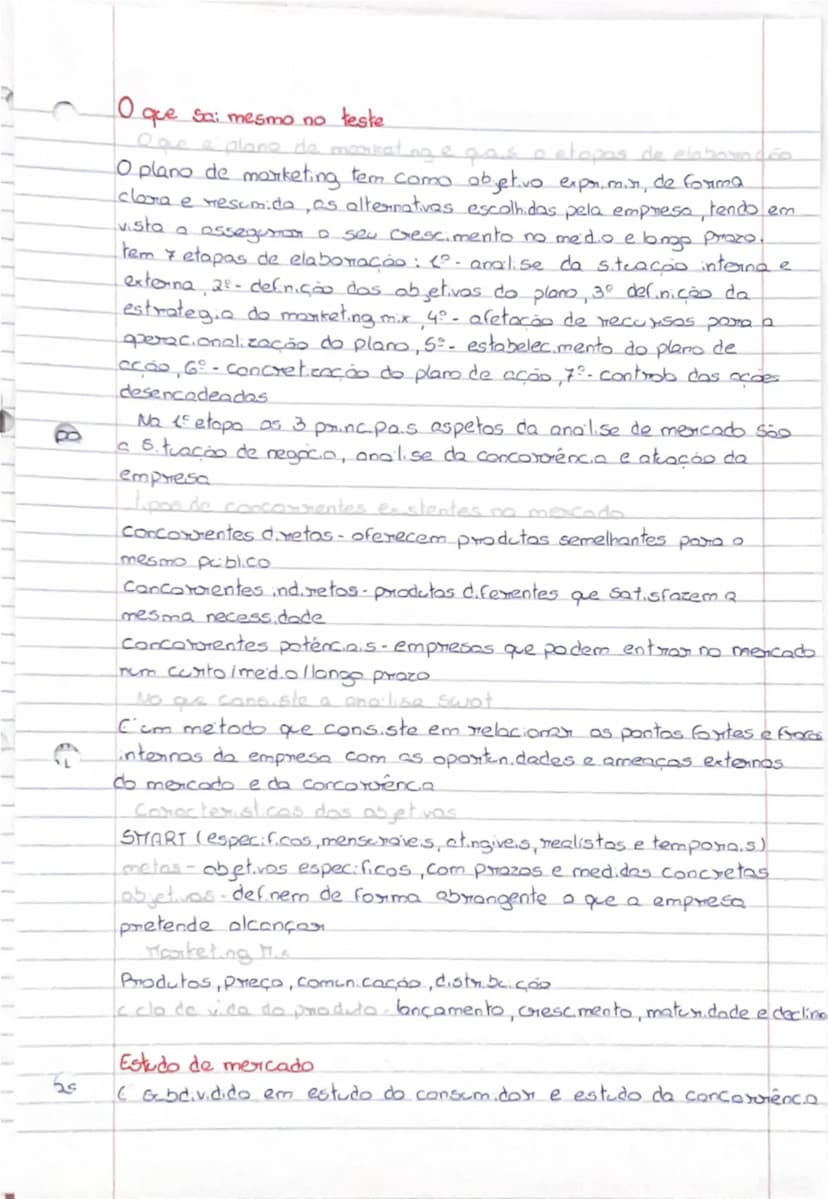 O que sai mesmo no teste
O que é plano de marketing e quais o etapas de elaboração
O plano de marketing tem como objetivo exprimir, de forma
clara e resumida, as alternativas escolhidas pela empresa, tendo em
vista a assegurar o seu crescimento no médio e longo prazo.
tem 7 etapas de elaboração: 1º- analise da situação interna e
externa, 2º- definição dos objetivos do plano, 3º definição da
estrategia do marketing mix, 4º- afetação de recursos para a
operacionalização do plano, 5º- estabelecimento do plano de
ação, 6º- concretização do plano de ação, 7º- controlo das ações
desencadeadas
Na 1º etapa os 3 principais aspetos da análise de mercado são
a situação de negócio, analise da concorrência e atuação da
empresa
tipos de concorrentes existentes no mercado
concorrentes diretos - oferecem produtos semelhantes para o
mesmo público
Concorrentes indiretos - produtos diferentes que satisfazem a
mesma necessidade
concorrentes potênciais - empresas que podem entrar no mercado
num curto/médio/longo prazo
No que consiste a analise swot
É um método que consiste em relacionar os pontos fortes e fracos
internos da empresa com as oportunidades e ameaças externas
do mercado e da concorrência
Caracteristicas dos objetivos
SMART (especificos, mensuraveis, atingiveis, realistas e temporais)
metas - objetivos especificos, com prazos e medidas concretas
objetivos - definem de forma abrangente o que a empresa
pretende alcançar
Marketing Mix
Produtos, preço, comunicação, distribuição
ciclo de vida do produto - lançamento, crescimento, maturidade e declino
Estudo de mercado
É subdividido em estudo do consumidor e estudo da concorrência